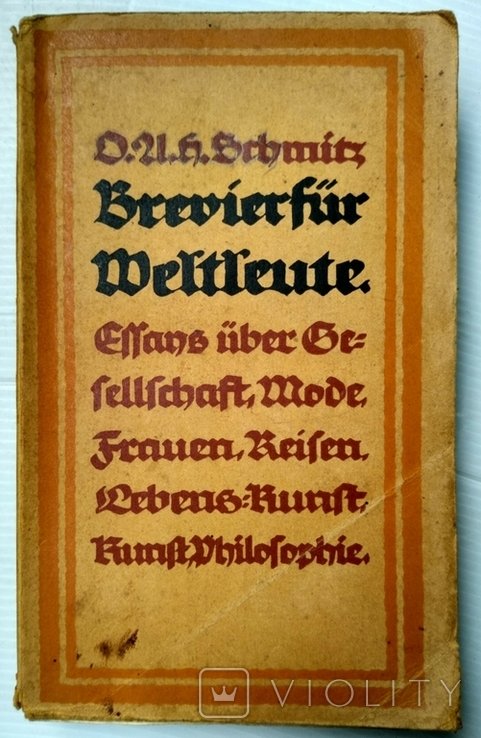 O. A. H. Schmitz
Brevier für
Weltleute.
Essays über Ge=
sellschaft, Mode,
Frauen, Reisen,
Lebens=Kunst,
Kunst, Philosophie.
VIOLITY